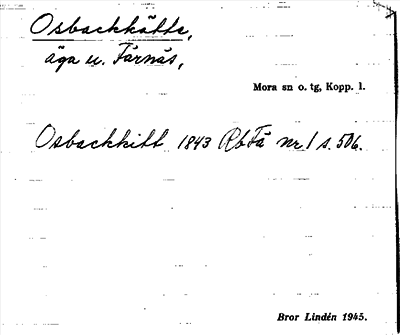 Osbackkätte,
äga u. Färnäs,
Mora sn o. tg, Kopp. l.
Osbackkitt 1843 RbFä nr 1 s. 506.
Bror Lindén 1945.